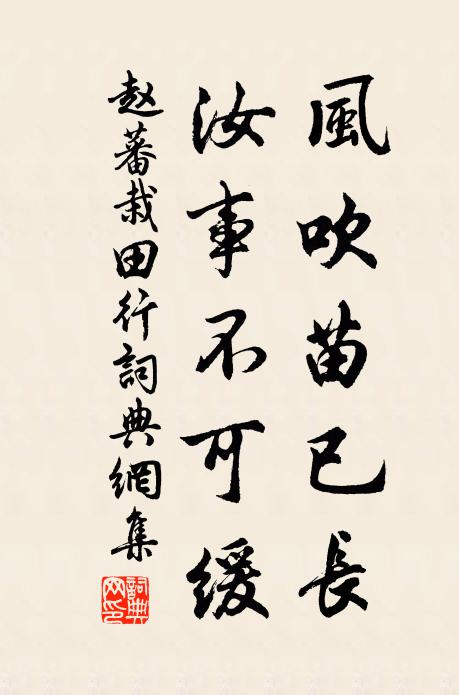 風吹苗已長
汝事不可緩
赵蕃栽田行詞典網集
詞典網印